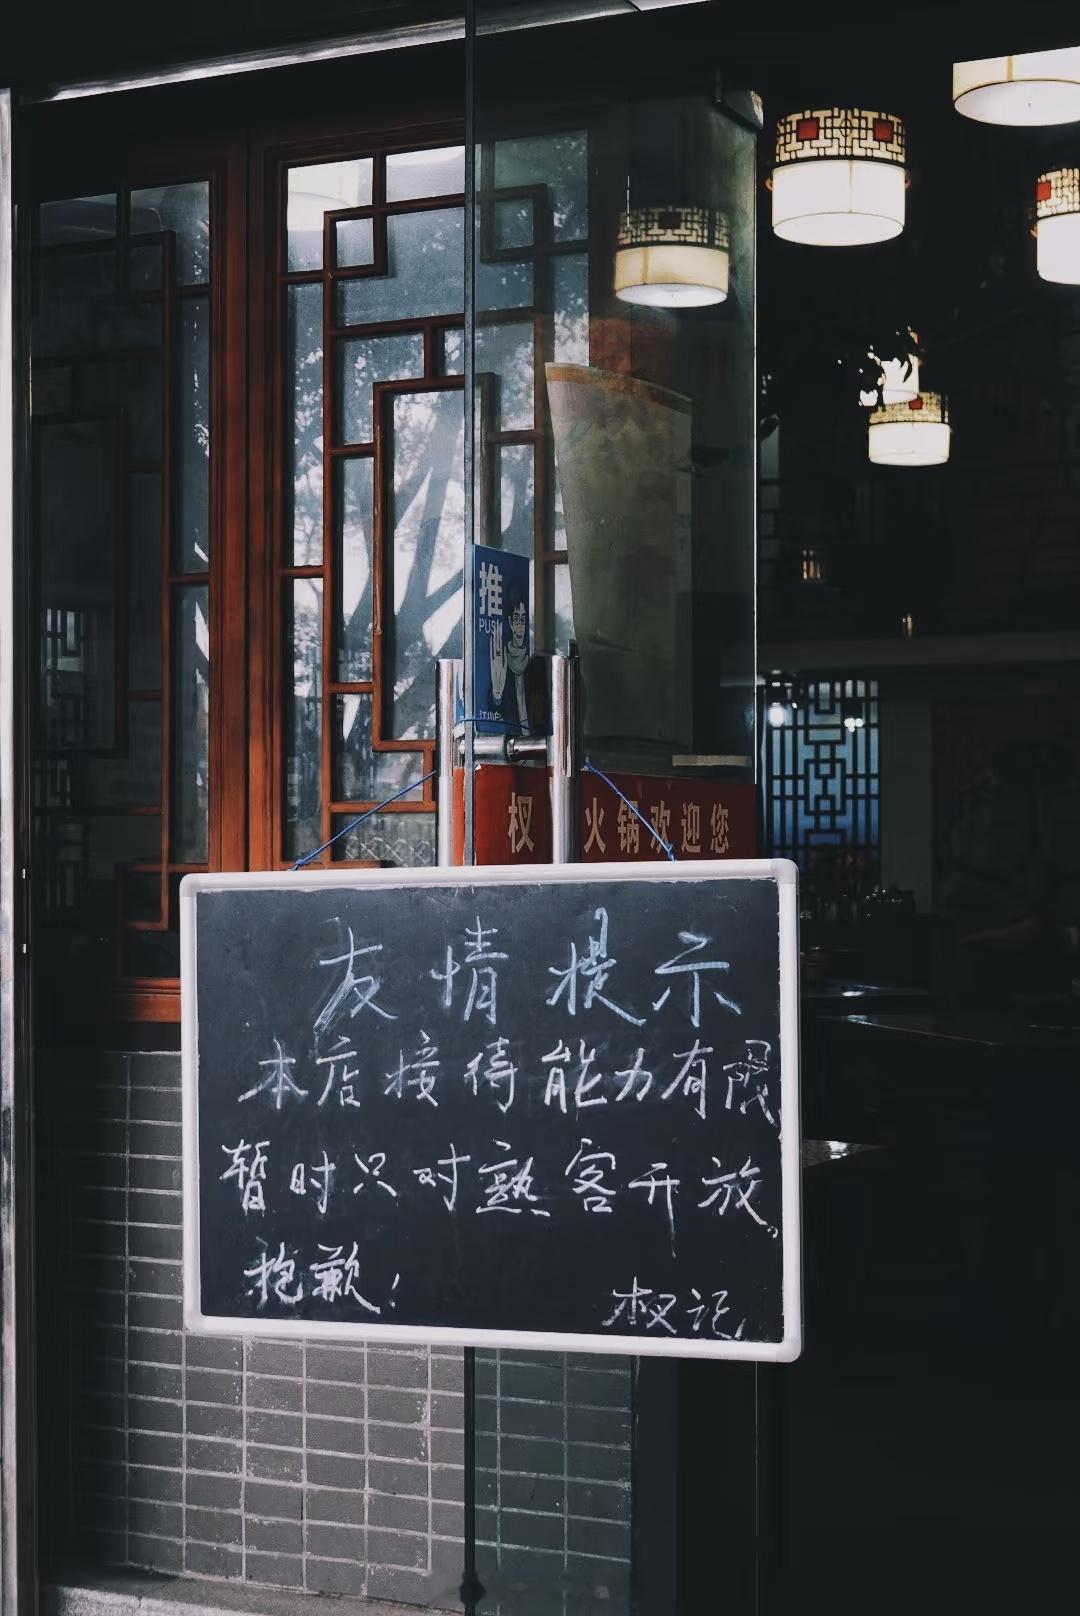 推
PUSH
江小白
杈 火锅欢迎您
友情提示
本店接待能力有限
暂时只对熟客开放。
抱歉！
杈记